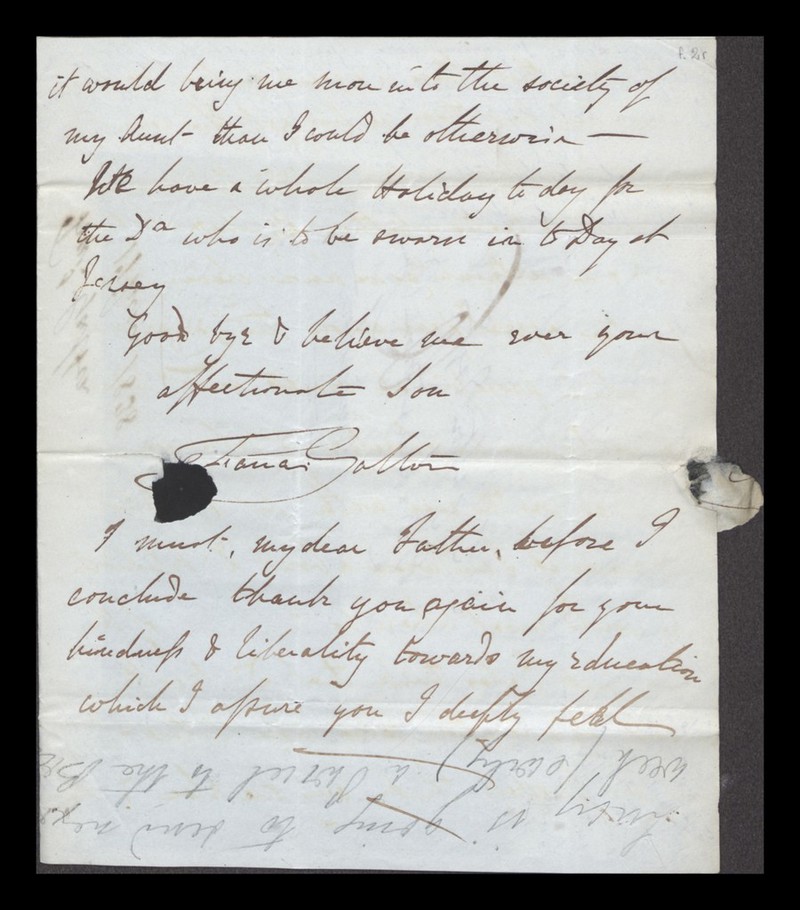 f. 2r
it would bring me more into the society of
my Aunt than I could be otherwise —
We have a whole Holiday to day for
the Dr who is to be sworn in to Day at
Jersey
Good bye & believe me ever your
affectionate Son
Francis Galton
I must, my dear Father, before I
conclude thank you again for your
kindness & liberality towards my education
which I assure you I deeply feel
is going to send next
week (early) a Parcel to the